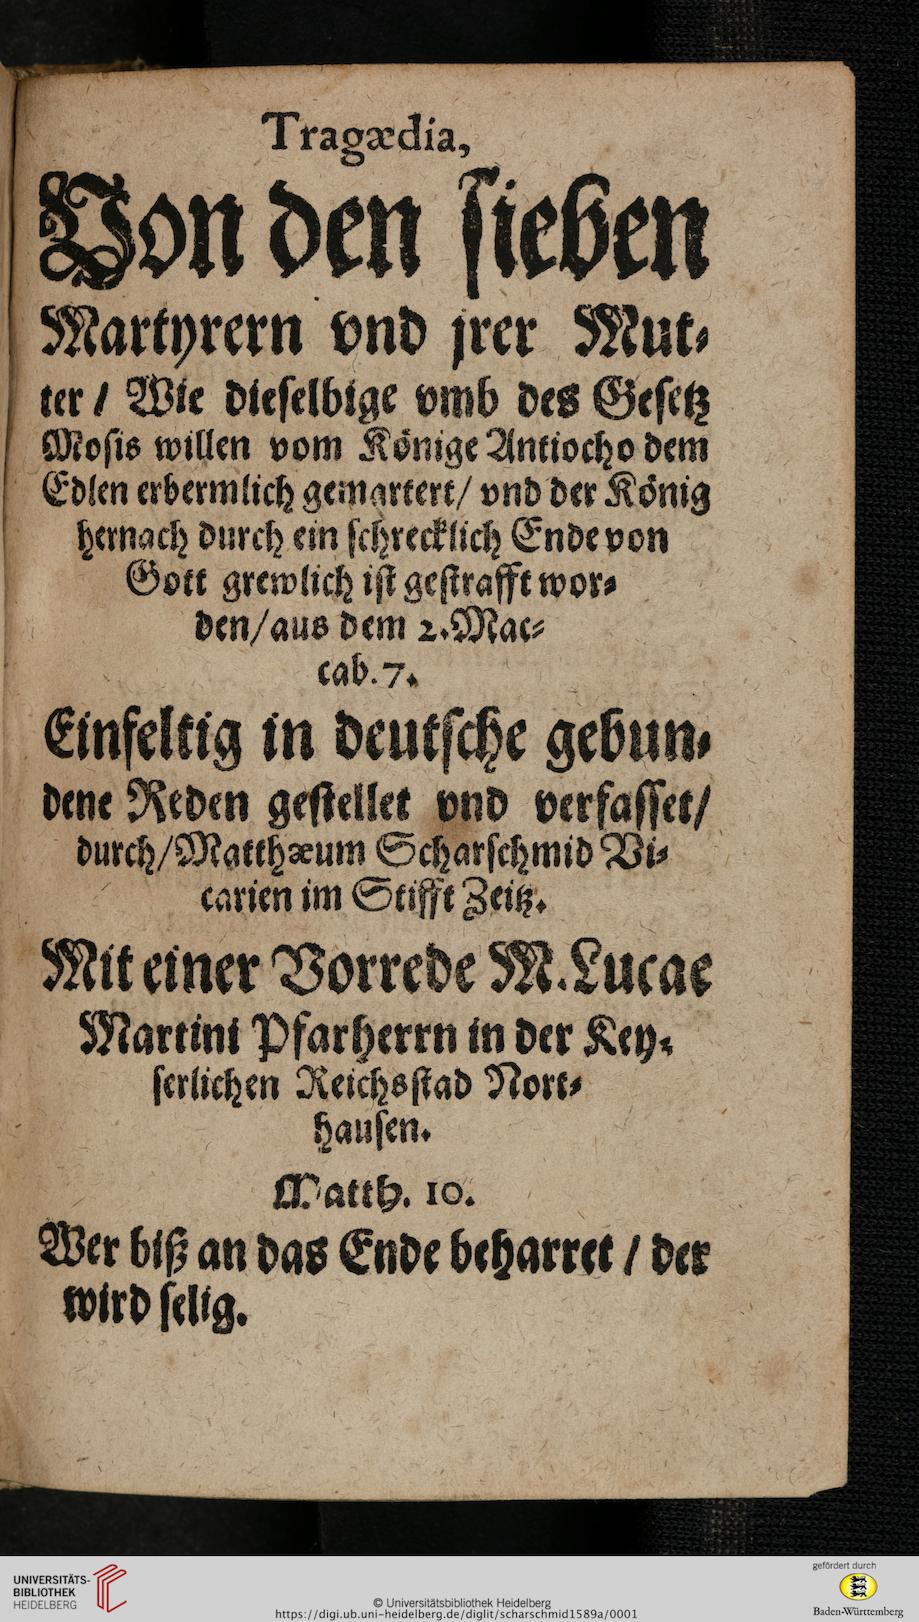 Tragædia,
Von den sieben
Martyrern vnd jrer Mut⸗
ter / Wie dieselbige vmb des Gesetz
Mosis willen vom Könige Antiocho dem
Edlen erbermlich gemartert/ vnd der König
hernach durch ein schrecklich Ende von
Gott grewlich ist gestrafft wor⸗
den/aus dem 2.Mac⸗
cab. 7.
Einfeltig in deutsche gebun⸗
dene Reden gestellet vnd verfasset/
durch/Matthæum Scharschmid Vi⸗
carien im Stifft Zeitz.
Mit einer Vorrede M.Lucae
Martini Pfarherrn in der Key⸗
serlichen Reichsstad Nort⸗
hausen.
Matth. 10.
Wer biß an das Ende beharret / der
wird selig.
UNIVERSITÄTS-
BIBLIOTHEK
HEIDELBERG
© Universitätsbibliothek Heidelberg
https://digi.ub.uni-heidelberg.de/diglit/scharschmid1589a/0001
gefördert durch
Baden-Württemberg